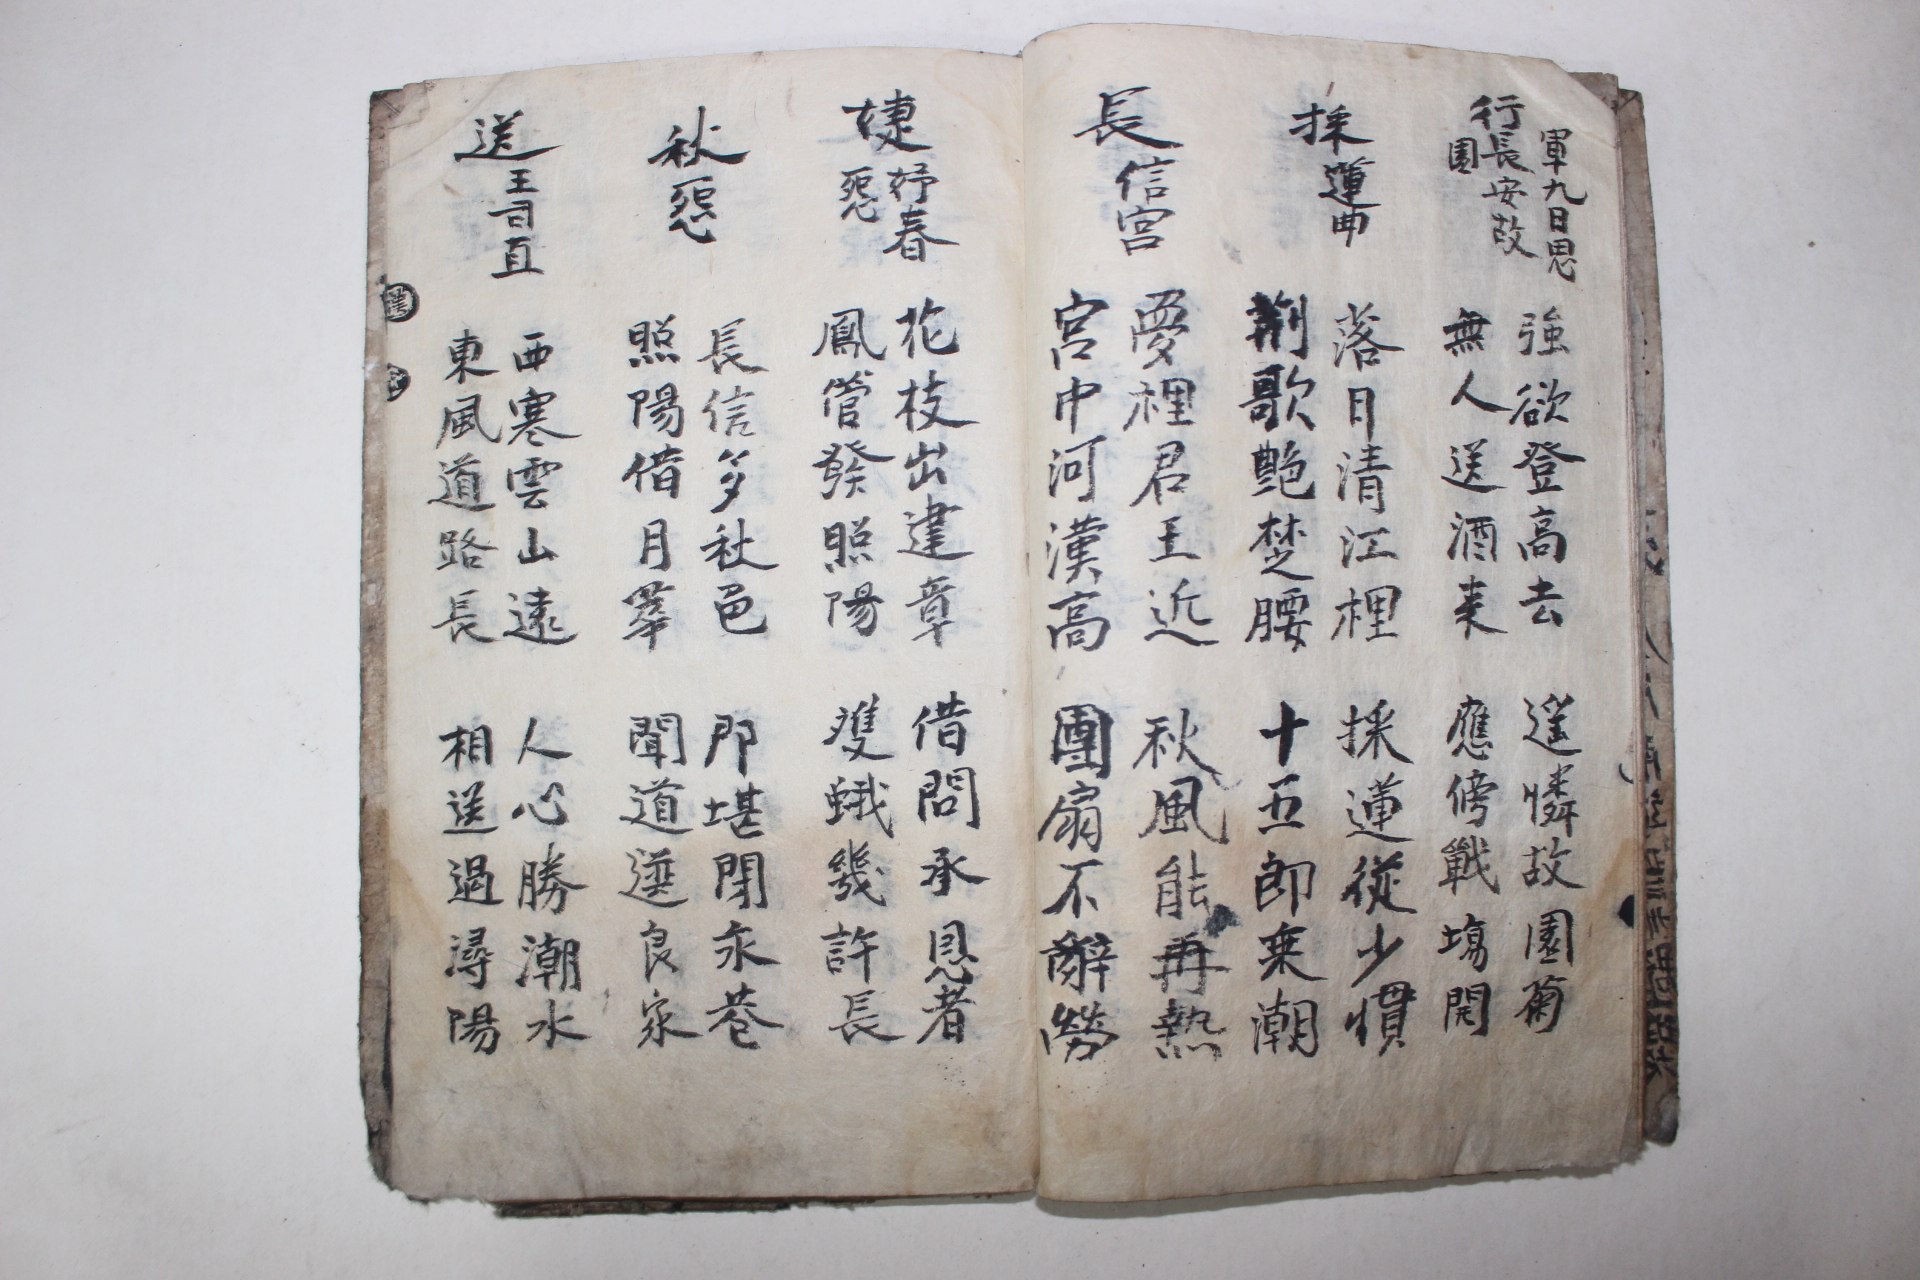 行
軍九日思
長安故
園
強欲登高去
無人送酒来
遥憐故園菊
應傍戰塲開
採
蓮曲
落日清江裡
荊歌艶楚腰
採蓮從少慣
十五即乗潮
長
信宮
夢裡君王近
宮中河漢高
秋風能再熱
團扇不辭勞
婕
妤春
怨
花枝出建章
鳳管發照陽
借問承恩者
雙蛾幾許長
秋
怨
長信多秋色
照陽借月華
那堪閉永巷
聞道選良家
送
王司直
西寒雲山遠
東風道路長
人心勝潮水
相送過潯陽